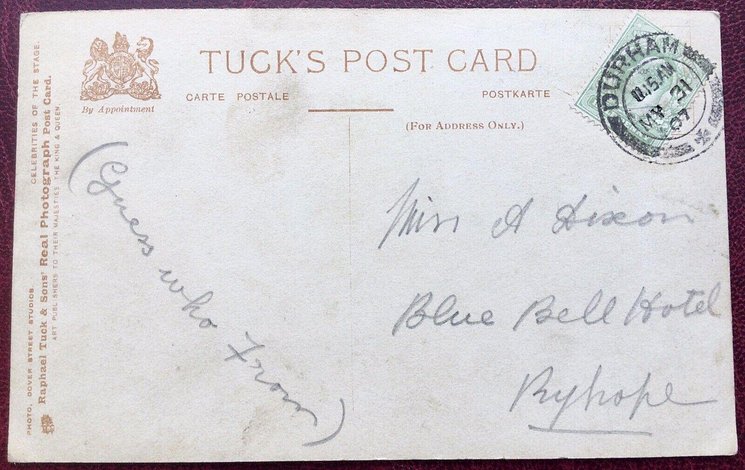 By Appointment
TUCK'S POST CARD
CARTE POSTALE
POSTKARTE
(FOR ADDRESS ONLY.)
DURHAM
11.15AM
MY 31
07
CELEBRITIES OF THE STAGE.
Raphael Tuck & Sons' Real Photograph Post Card.
ART PUBLISHERS TO THEIR MAJESTIES THE KING & QUEEN.
PHOTO. DOVER STREET STUDIOS.
(Guess who From)
Miss A Dixon
Blue Bell Hotel
Ryhope